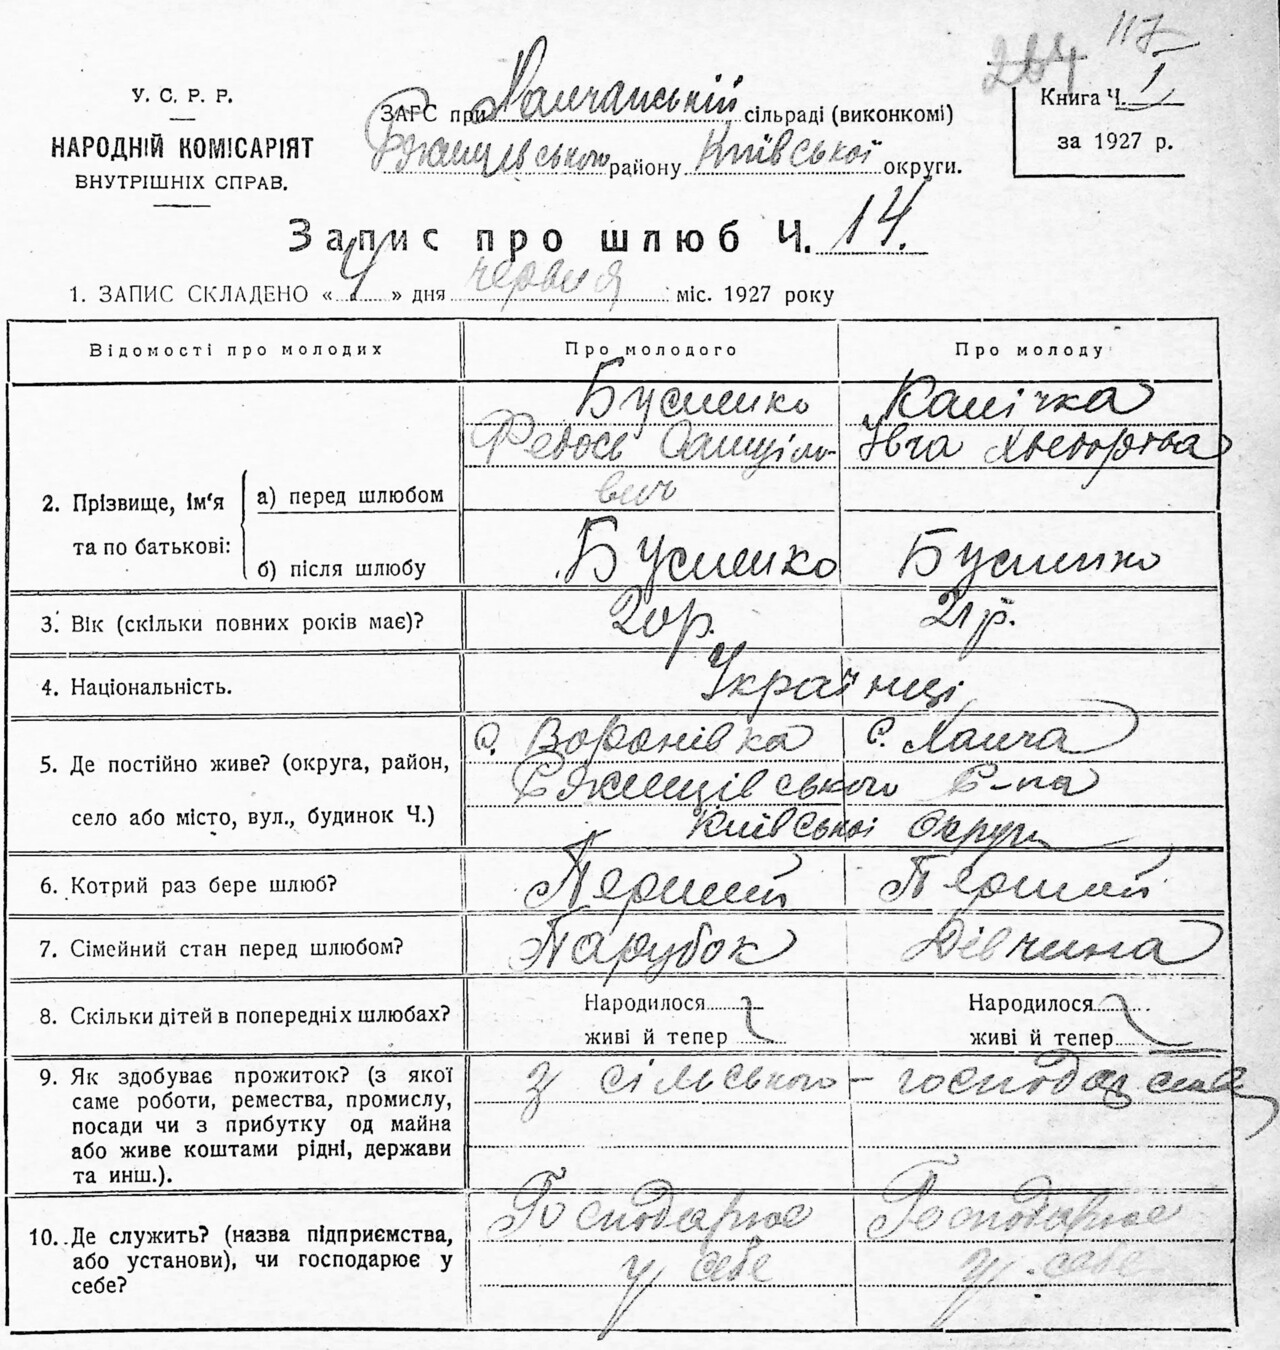 264 117
У. С. Р. Р.
НАРОДНІЙ КОМІСАРІЯТ
ВНУТРІШНІХ СПРАВ.
ЗАГС при Ханчанській сільраді (виконкомі)
району Київської округи.
Книга Ч. 1
за 1927 р.
Запис про шлюб Ч. 14.
1. ЗАПИС СКЛАДЕНО « 4 » дня червня міс. 1927 року
Відомості про молодих Про молодого Про молоду
2. Прізвище, ім'я та по батькові:
а) перед шлюбом
Бусленко
Федось Самуіло-
вич
Канічка
Ївга
б) після шлюбу Бусленко Бусленко
3. Вік (скільки повних років має)? 20 р. 21 р.
4. Національність. Українці
5. Де постійно живе? (округа, район,
село або місто, вул., будинок Ч.)
с. Воронівка с. Ханча
Р-на
Київської Округи
6. Котрий раз бере шлюб? Перший Перший
7. Сімейний стан перед шлюбом? Парубок Дівчина
8. Скільки дітей в попередніх шлюбах?
Народилося Народилося
живі й тепер живі й тепер
9. Як здобуває прожиток? (з якої
саме роботи, ремества, промислу,
посади чи з прибутку од майна
або живе коштами рідні, держави
та инш.).
З сільського – господарства
10. Де служить? (назва підприємства,
або установи), чи господарює у
себе?
Господарює Господарює
у себе у себе